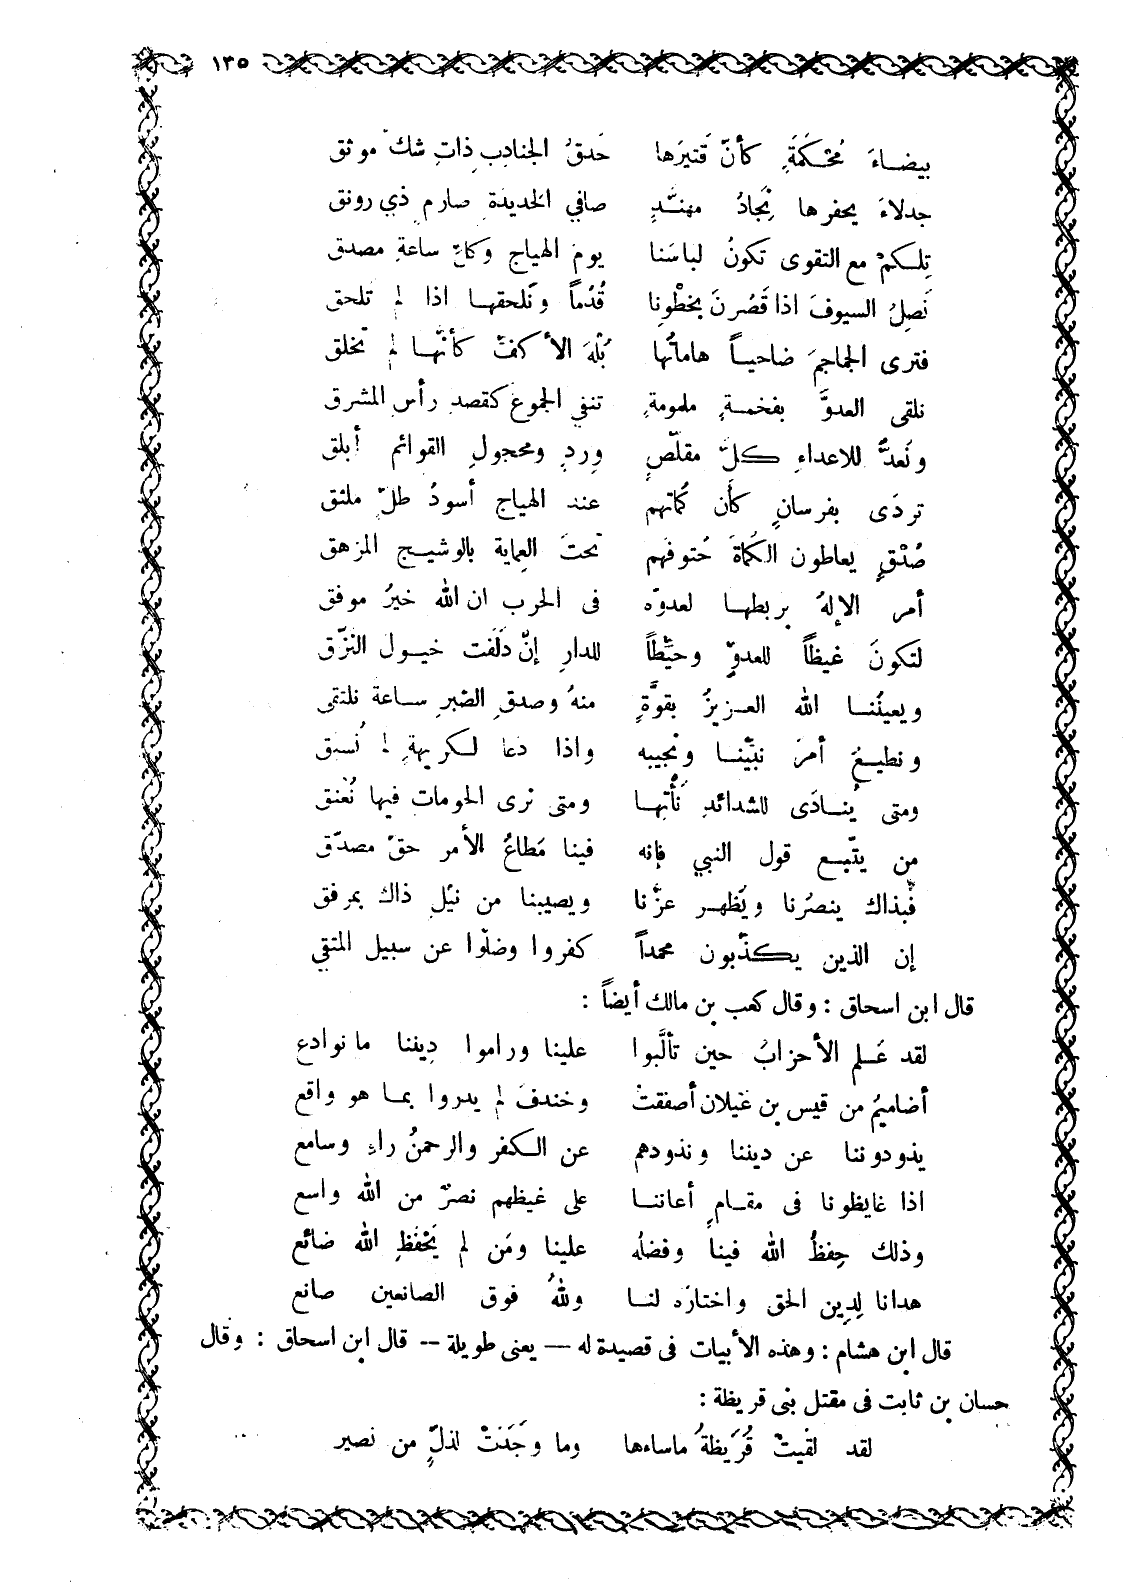 ١٣٥
بيضاءَ مُحْكَمَةٍ كأنّ قَتيرَها حَدقُ الجنادِبِ ذاتِ شك موثق
جدلاءَ يحفرها نِجادُ مهنّدٍ صافي الحديدة صارمٍ ذي رونق
تِلكمْ مع التقوى تكونُ لباسَنا يومَ الهياج وكلّ ساعةِ مصدق
نَصِلُ السيوفَ اذا قَصُرنَ بخطْونا قُدُماً ونُلحقها اذا لم تلحق
فترى الجماجمَ ضاحياً هاماتُها بَلْهَ الأكفّ كأنّها لم تخلق
نلقى العدوَّ بفخمةٍ ملمومةٍ تنفي الجموعَ كقصدِ رأس المشرق
ونَعدُّ للاعداءِ كلّ مقلّصٍ وردٍ ومحجولِ القوائم أبلق
تردَى بفرسانٍ كأَن كُماتهم عند الهياج أسودُ طلّ ملثق
صُدْقٍ يعاطون الكُماةَ حُتوفهم تحتَ العماية بالوشيج المزهق
أمر الإلهُ بربطها لعدوّه فى الحرب ان الله خيرُ موفق
لتكونَ غيظاً للعدوّ وحيّطاً للدارِ إنّ دَلَفت خيول النزّق
ويعينُنا الله العزيزُ بقوَّةٍ منهُ وصدقِ الصبرِ ساعة نلتقى
ونطيعُ أمرَ نبيّنا ونُجيبه واذا دَعا لكريهةٍ لم نُسبق
ومتى يُنادَى للشدائدِ نَأْتِها ومتى نرى الحوماتِ فيها نُعْنق
من يتّبع قول النبي فإنه فينا مُطاعُ الأمر حقّ مصدّق
فبذاك ينصرُنا ويُظهر عزَّنا ويصيبنا من نيْلِ ذاك بمرفق
إن الذين يكذّبون محمداً كفروا وضلّوا عن سبيل المتقي
قال ابن اسحاق : وقال كعب بن مالك أيضاً :
لقد عَلم الأحزابُ حين تألَّبوا علينا وراموا دِيننا ما نوادع
أضاميمُ من قيس بن غيلان أصفقتْ وخندفَ لم يدروا بما هو واقع
يذودوننا عن ديننا ونذودهم عن الكفر والرحمنُ راءٍ وسامع
اذا غايظونا فى مقامٍ أعاننا على غيظهم نصرٌ من الله واسع
وذلك حِفظُ الله فينا وفضلُه علينا ومَن لم يَحْفَظِ الله ضائع
هدانا لِدِين الحق واختارَه لنا وللهُ فوق الصانعين صانع
قال ابن هشام : وهذه الأبيات فى قصيدة له — يعنى طويلة -- قال ابن اسحاق : وقال
حسان بن ثابت فى مقتل بنى قريظة :
لقد لقيتْ قُرَيظةُ ماساءها وما وجَدتْ لذلٍّ من نصير